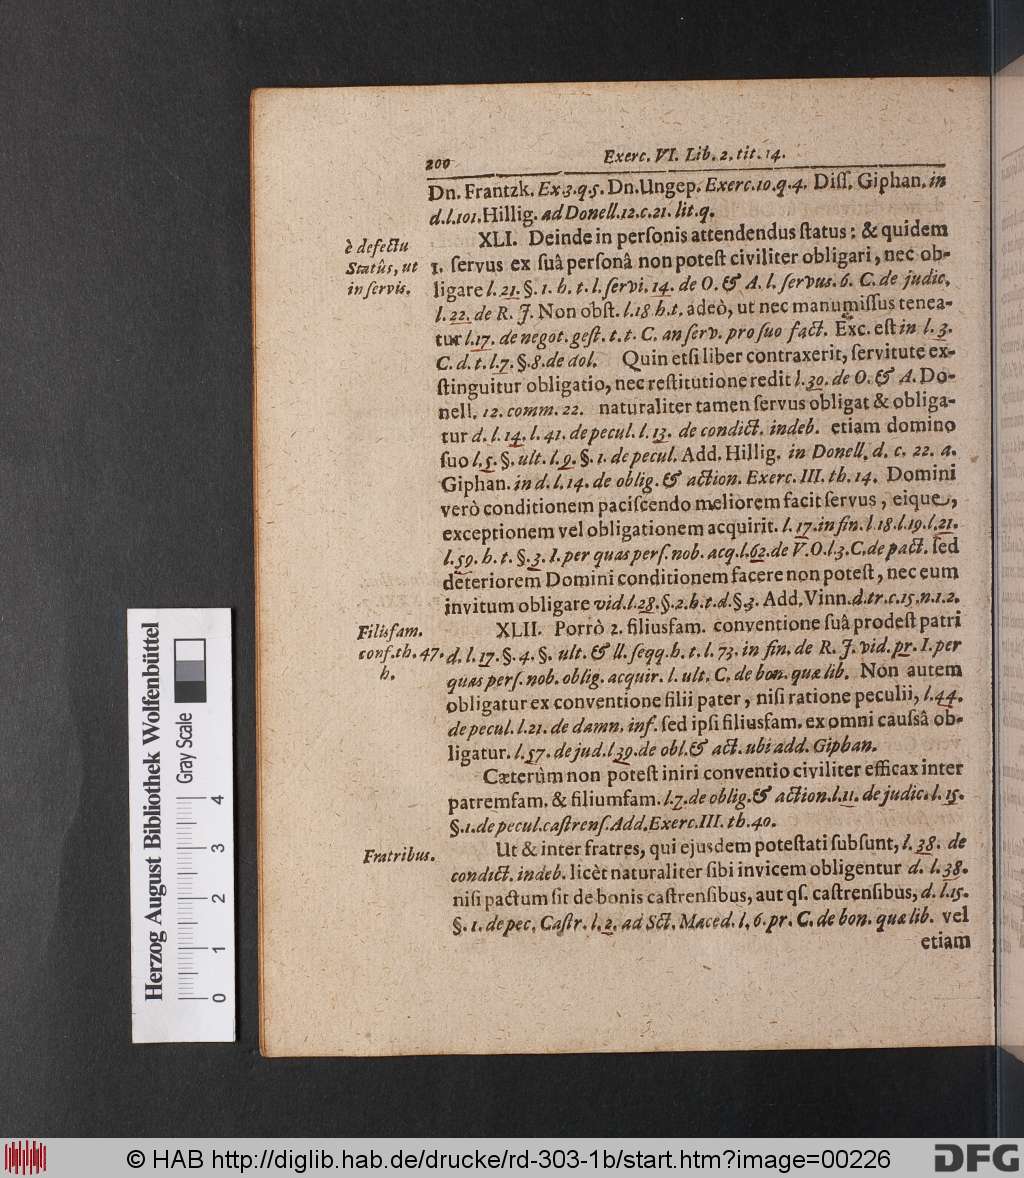 200
Exerc. VI. Lib. 2. tit. 14.
Dn. Frantzk. Ex. 3. q. 5. Dn. Ungep. Exerc. 10. q. 4. Diſſ. Giphan. in
d. l. 101. Hillig. ad Donell. 12. c. 21. lit. q.
è defectu
Statûs, ut
in ſervis.
XLI. Deinde in perſonis attendendus ſtatus: & quidem
1. ſervus ex ſuâ perſonâ non poteſt civiliter obligari, nec ob-
ligare l. 21. §. 1. h. t. l. ſervi. 14. de O. & A. l. ſervus. 6. C. de judic.
l. 22. de R. J. Non obſt. l. 18 h. t. adeò, ut nec manumiſſus tenea-
tur l. 17. de negot. geſt. t. t. C. an ſerv. pro ſuo fact. Exc. eſt in l. 3.
C. d. t. l. 7. §. 8. de dol. Quin etſi liber contraxerit, ſervitute ex-
ſtinguitur obligatio, nec reſtitutione redit l. 30. de O. & A. Do-
nell. 12. comm. 22. naturaliter tamen ſervus obligat & obliga-
tur d. l. 14. l. 41. de pecul. l. 13. de condict. indeb. etiam domino
ſuo l. 5. §. ult. l. 9. §. 1. de pecul. Add. Hillig. in Donell. d. c. 22. a.
Giphan. in d. l. 14. de oblig. & action. Exerc. III. th. 14. Domini
verò conditionem paciſcendo meliorem facit ſervus, eique,
exceptionem vel obligationem acquirit. l. 17. in fin. l. 18. l. 19. l. 21.
l. 59. h. t. §. 3. I. per quas perſ. nob. acq. l. 62. de V. O. l. 3. C. de pact. ſed
deteriorem Domini conditionem facere non poteſt, nec eum
invitum obligare vid. l. 28. §. 2. h. t. d. §. 3. Add. Vinn. d. tr. c. 15. n. 1. 2.
Filiisfam.
conf. th. 47.
h.
XLII. Porrò 2. filiusfam. conventione ſuâ prodeſt patri
d. l. 17. §. 4. §. ult. & ll. ſeqq. h. t. l. 73. in fin. de R. J. vid. pr. I. per
quas perſ. nob. oblig. acquir. l. ult. C. de bon. quæ lib. Non autem
obligatur ex conventione filii pater, niſi ratione peculii, l. 44.
de pecul. l. 21. de damn. inf. ſed ipſi filiusfam. ex omni cauſsâ ob-
ligatur. l. 57. de jud. l. 39. de obl. & act. ubi add. Giphan.
Cæterùm non poteſt iniri conventio civiliter efficax inter
patremfam. & filiumfam. l. 7. de oblig. & action. l. 11. de judic. l. 15.
§. 1. de pecul. caſtrenſ. Add. Exerc. III. th. 40.
Fratribus.
Ut & inter fratres, qui ejusdem poteſtati ſubſunt, l. 38. de
condict. indeb. licèt naturaliter ſibi invicem obligentur d. l. 38.
niſi pactum ſit de bonis caſtrenſibus, aut qſ. caſtrenſibus, d. l. 15.
§. 1. de pec. Caſtr. l. 2. ad Sct. Maced. l. 6. pr. C. de bon. quæ lib. vel
etiam
Herzog August Bibliothek Wolfenbüttel
Gray Scale
0 1 2 3 4
© HAB http://diglib.hab.de/drucke/rd-303-1b/start.htm?image=00226
DFG